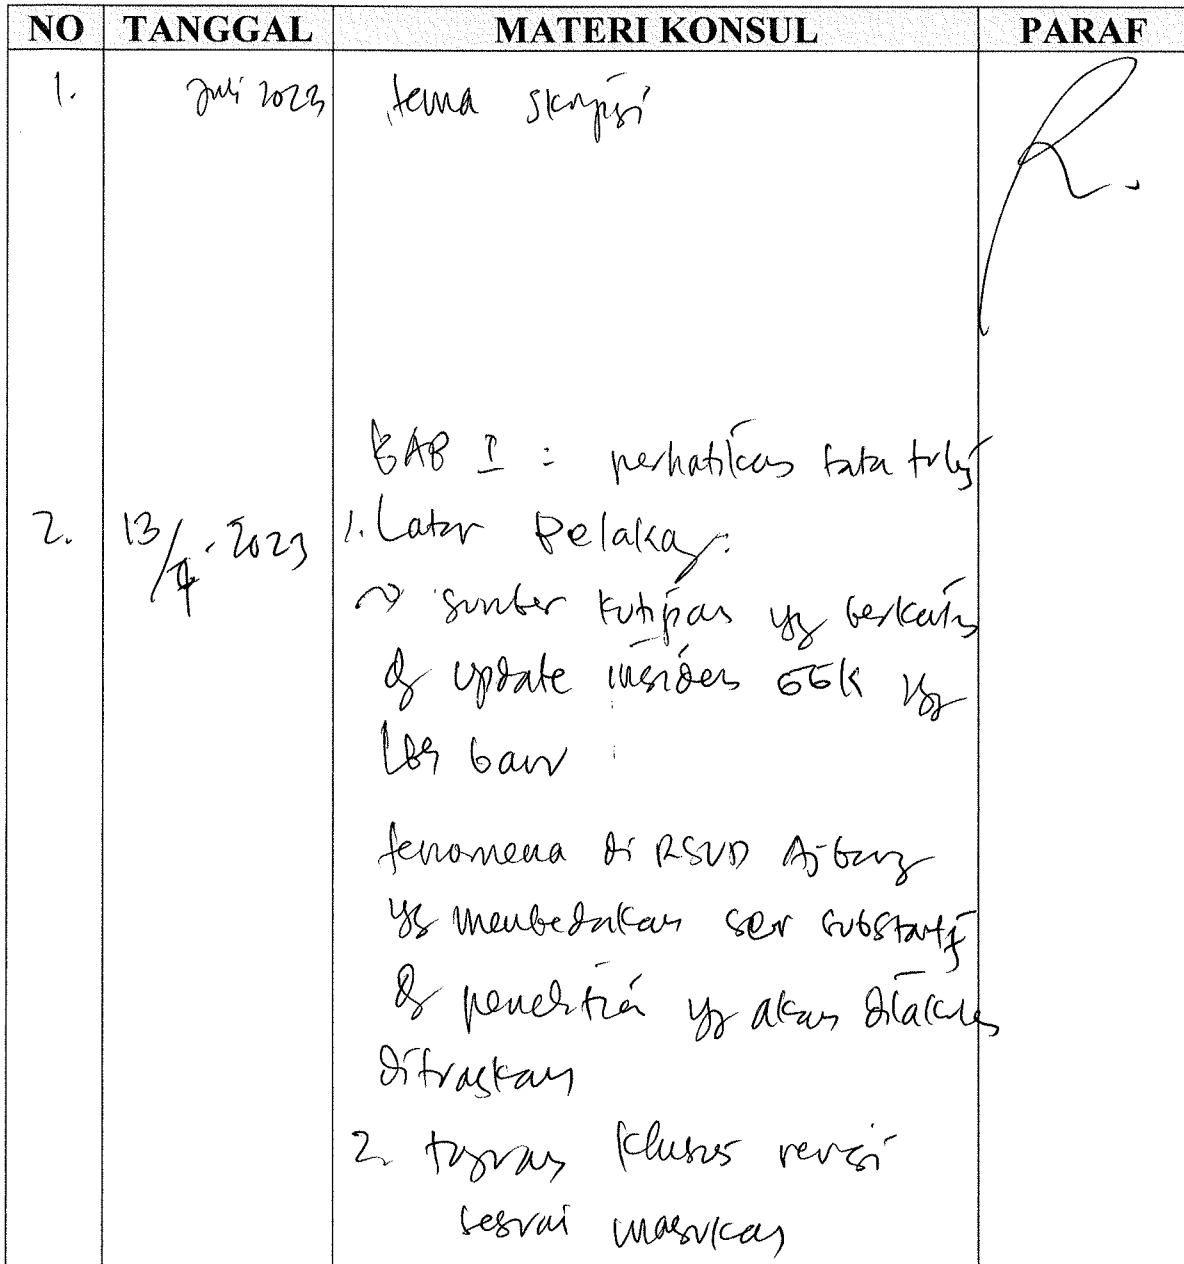 NO TANGGAL MATERI KONSUL PARAF
1. Juli 2023 tema skripsi
BAB I : perhatikan tata tulis
2. 13/7.2023 1. Latar Belakag.
→ sumber kutipan yg berkaitn
dg update insiden BBK yg
lbh baru
fenomena di RSUD Ajibarg
yg membedakan scr substantif
dg penelitian yg akan dilakukn
ditraskan
2. tujuan khusus revisi
sesuai masukan